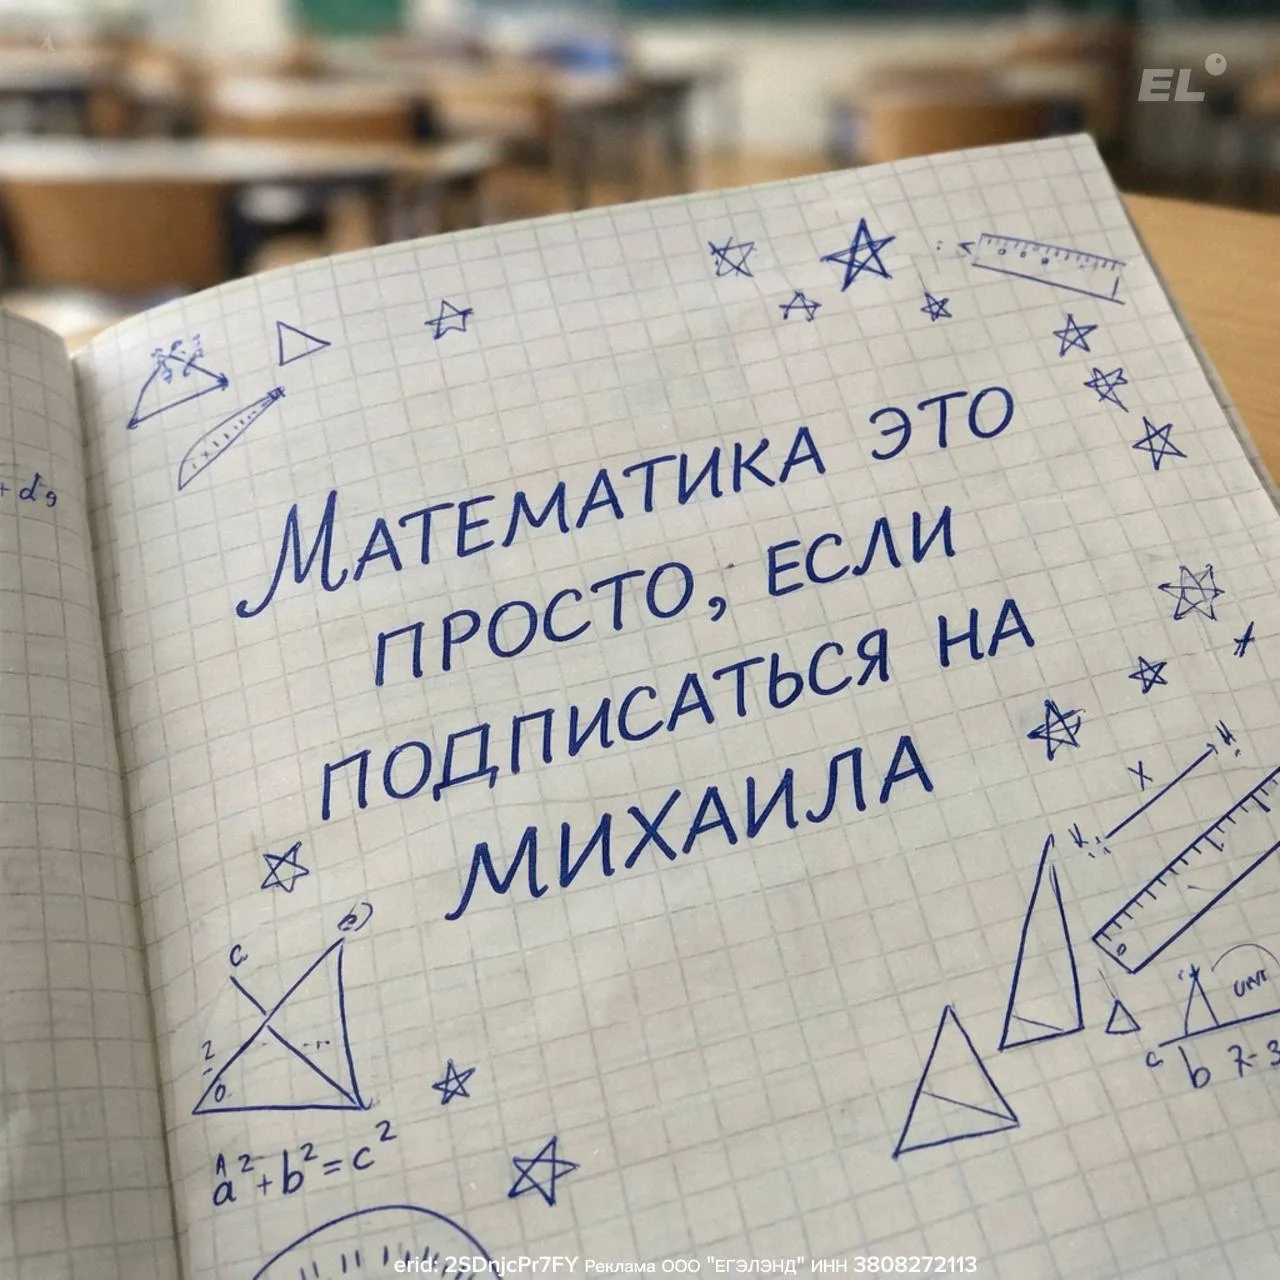 EL
+ d'9
МАТЕМАТИКА ЭТО
ПРОСТО, ЕСЛИ
ПОДПИСАТЬСЯ НА
МИХАИЛА
x
c
2
0
a² + b² = c²
c b 7-3
erid: 2SDnjcPr7FY Реклама ООО "ЕГЭЛЭНД" ИНН 3808272113